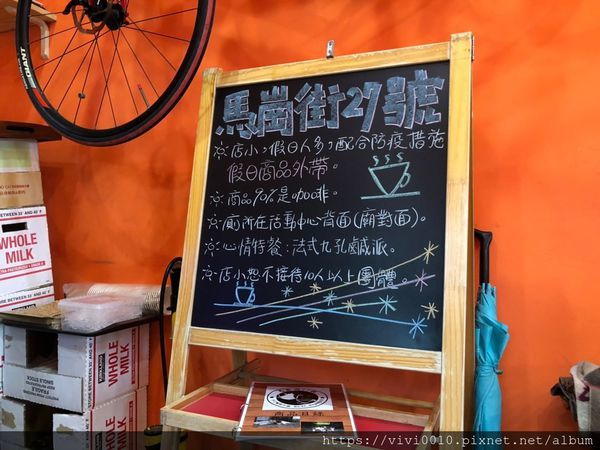 馬崗街27號
☼店小，假日人多，配合防疫措施
假日商品外帶。
☼商品90%是咖啡。
☼廁所在活動中心背面(廟對面)。
☼心情特餐：法式九孔鹹派。
☼店小恕不接待10人以上團體。
GIANT
WHOLE
MILK
WHOLE MILK
WHOLE MILK
https://vivi0010.pixnet.net/album